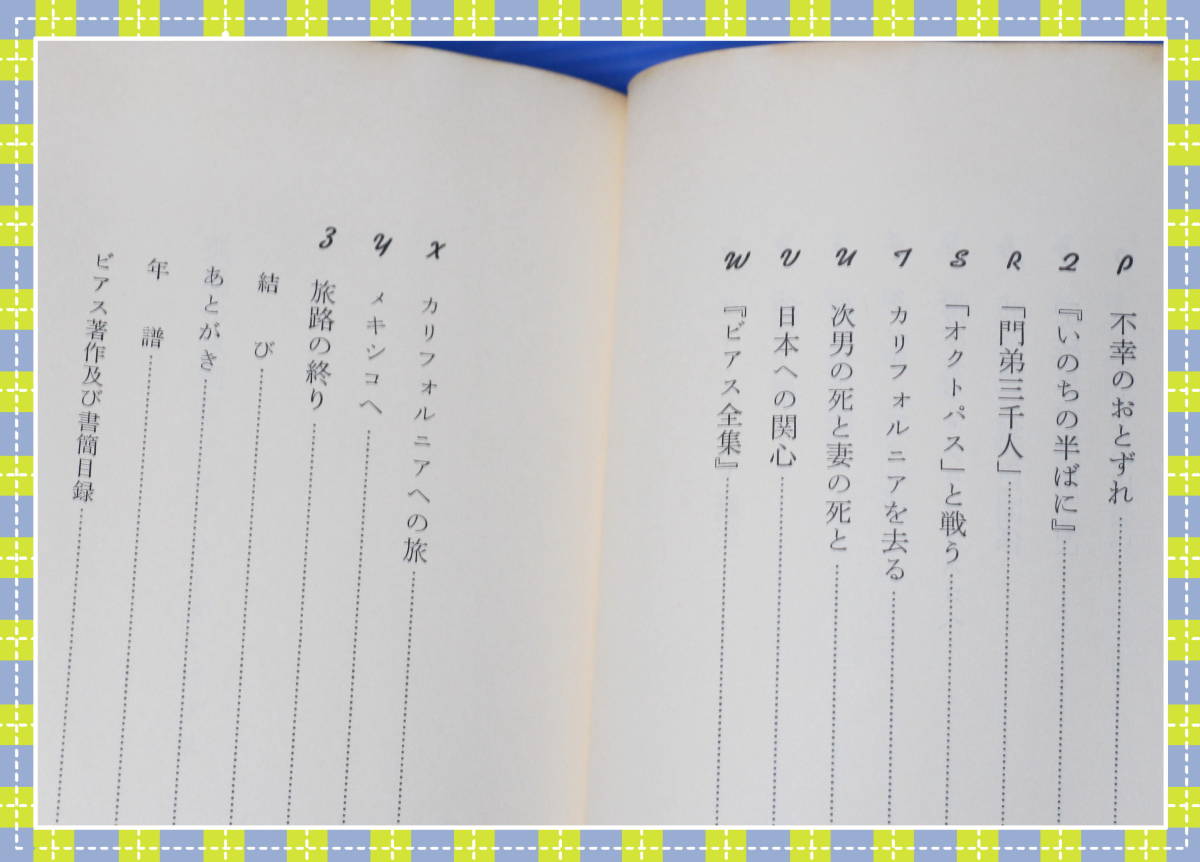 P 不幸のおとずれ
Q 『いのちの半ばに』
R 「門弟三千人」
S 「オクトパス」と戦う
T カリフォルニアを去る
U 次男の死と妻の死と
V 日本への関心
W 『ビアス全集』
X カリフォルニアへの旅
Y メキシコへ
Z 旅路の終り
結び
あとがき
年譜
ビアス著作及び書簡目録